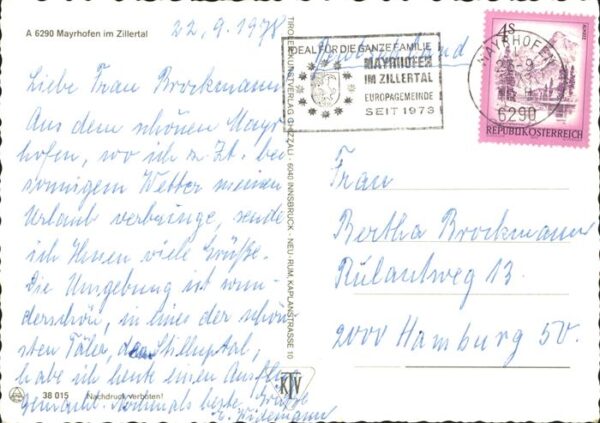 A 6290 Mayrhofen im Zillertal
22.9.1978
Liebe Frau Brockmann
Aus dem schönen Mayr-
hofen, wo ich z. Zt. bei
sonnigem Wetter meinen
Urlaub verbringe, sende
ich Ihnen viele Grüße.
Die Umgebung ist wun-
derschön, in eines der schön-
sten Täler, das Stilluptal,
habe ich heute einen Ausflug
gemacht. Nochmals beste Grüße
E. Widemann
38 015 Nachdruck verboten!
TIROLER KUNSTVERLAG CHIZZALI · 6040 INNSBRUCK - NEU-RUM, KAPLANSTRASSE 10
KTV
IDEAL FÜR DIE GANZE FAMILIE
MAYRHOFEN
IM ZILLERTAL
EUROPAGEMEINDE
SEIT 1973
Deutschland
MAYRHOFEN
6290
4S
REPUBLIK ÖSTERREICH
Frau
Bertha Brockmann
Rulantweg 13.
2000 Hamburg 50.